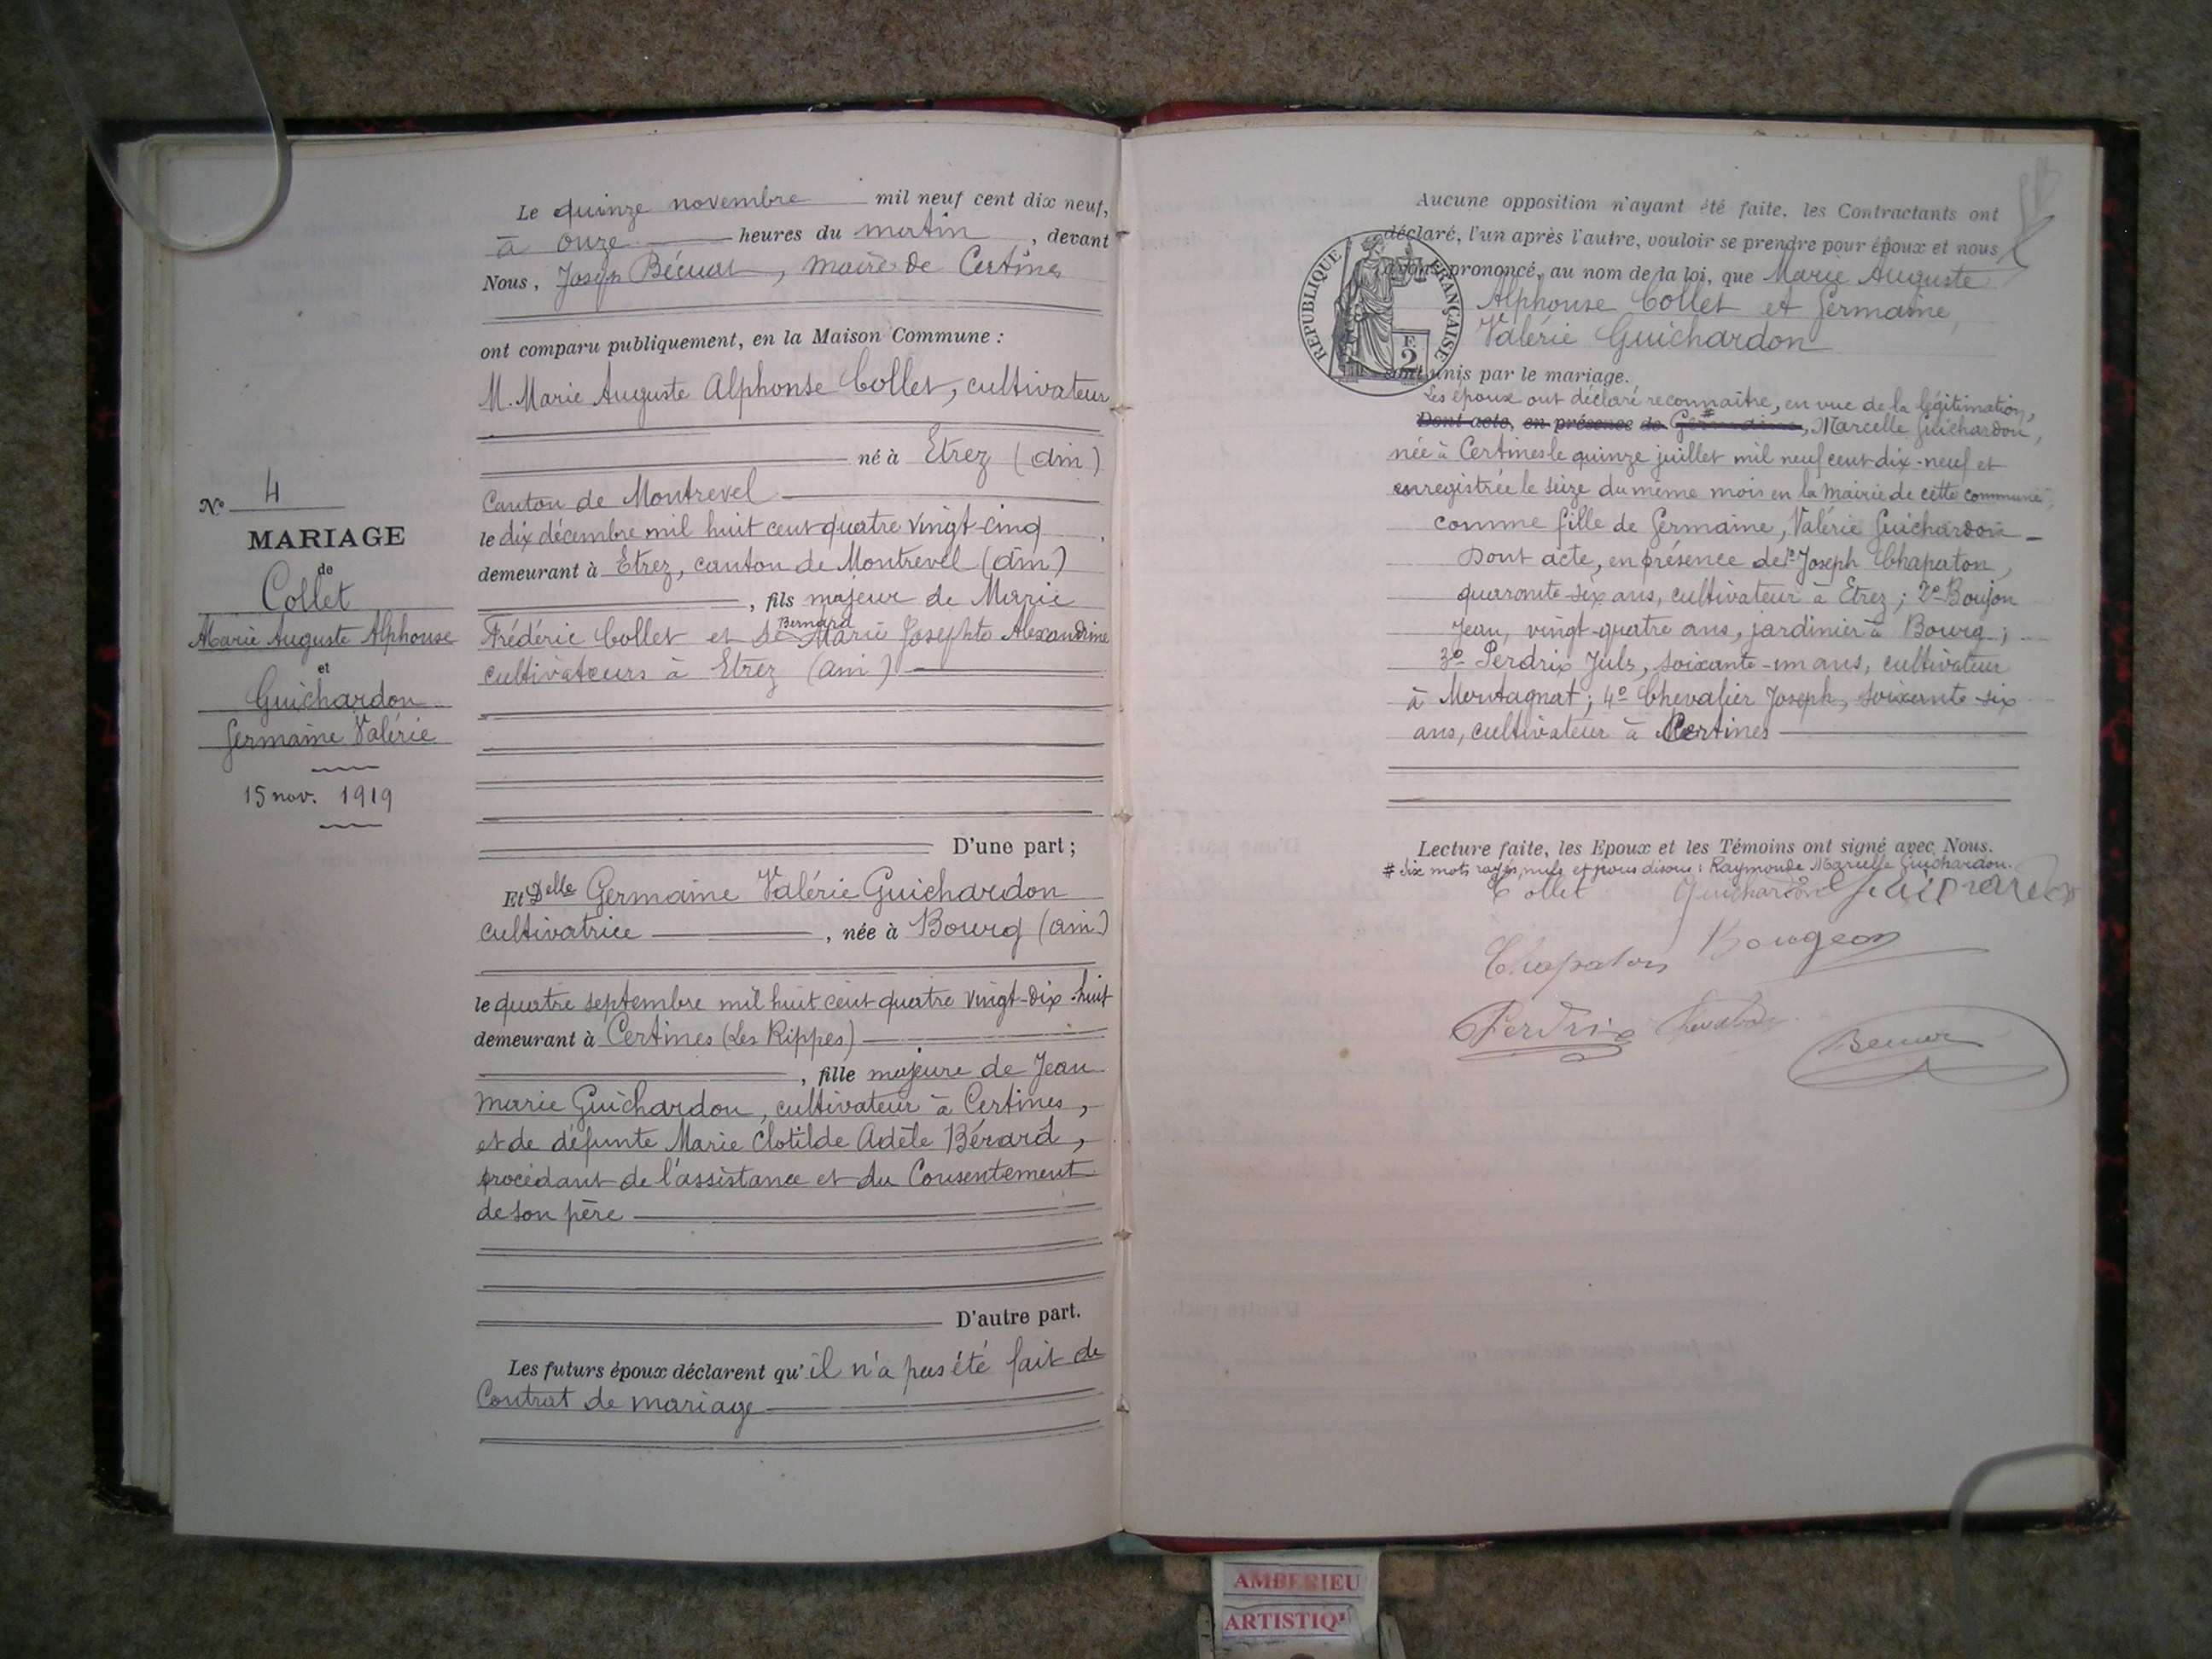 Le quinze novembre mil neuf cent dix neuf,
à onze heures du matin, devant
Nous, Joseph Bécuat, maire de Certines
ont comparu publiquement, en la Maison Commune :
M. Marie Auguste Alphonse Collet, cultivateur
né à Etrez (Ain)
Canton de Montrevel
le dix décembre mil huit cent quatre vingt-cinq
demeurant à Etrez, canton de Montrevel (Ain)
, fils majeur de Marie
Frédéric Collet et de Bernard Marie Josephte Alexandrine
cultivateurs à Etrez (Ain)
D'une part ;
Nº 4
MARIAGE
de
Collet
Marie Auguste Alphonse
et
Guichardon
Germaine Valérie
15 nov. 1919
Et Delle Germaine Valérie Guichardon
cultivatrice, née à Bourg (Ain)
le quatre septembre mil huit cent quatre vingt-dix-huit
demeurant à Certines (Les Rippes)
, fille majeure de Jean
Marie Guichardon, cultivateur à Certines,
et de défunte Marie Clotilde Adèle Bérard,
procédant de l'assistance et du Consentement
de son père
D'autre part.
Les futurs époux déclarent qu'il n'a pas été fait de
Contrat de mariage
Aucune opposition n'ayant été faite, les Contractants ont
déclaré, l'un après l'autre, vouloir se prendre pour époux et nous
avons prononcé, au nom de la loi, que Marie Auguste
Alphonse Collet et Germaine,
Valérie Guichardon
sont unis par le mariage.
RÉPUBLIQUE FRANÇAISE
E
2
Les époux ont déclaré reconnaître, en vue de la légitimation,
Dont acte, en présence de Germaine #, Marcelle Guichardon,
née à Certines le quinze juillet mil neuf cent dix-neuf et
enregistrée le seize du même mois en la mairie de cette commune,
comme fille de Germaine, Valérie Guichardon
Dont acte, en présence de 1º Joseph Chapaton,
quarante-six ans, cultivateur à Etrez ; 2º Boujon
Jean, vingt-quatre ans, jardinier à Bourg ;
3º Perdrix Juls, soixante-un ans, cultivateur
à Montagnat ; 4º Chevalier Joseph, soixante-six
ans, cultivateur à Certines
Lecture faite, les Epoux et les Témoins ont signé avec Nous.
# Six mots rayés nuls et nous disons : Raymonde Marcelle Guichardon.
Collet Guichardon Guichardon
Chapaton Bougeon
Perdrix Chevalier
Becuat
AMBERIEU
ARTISTIQ